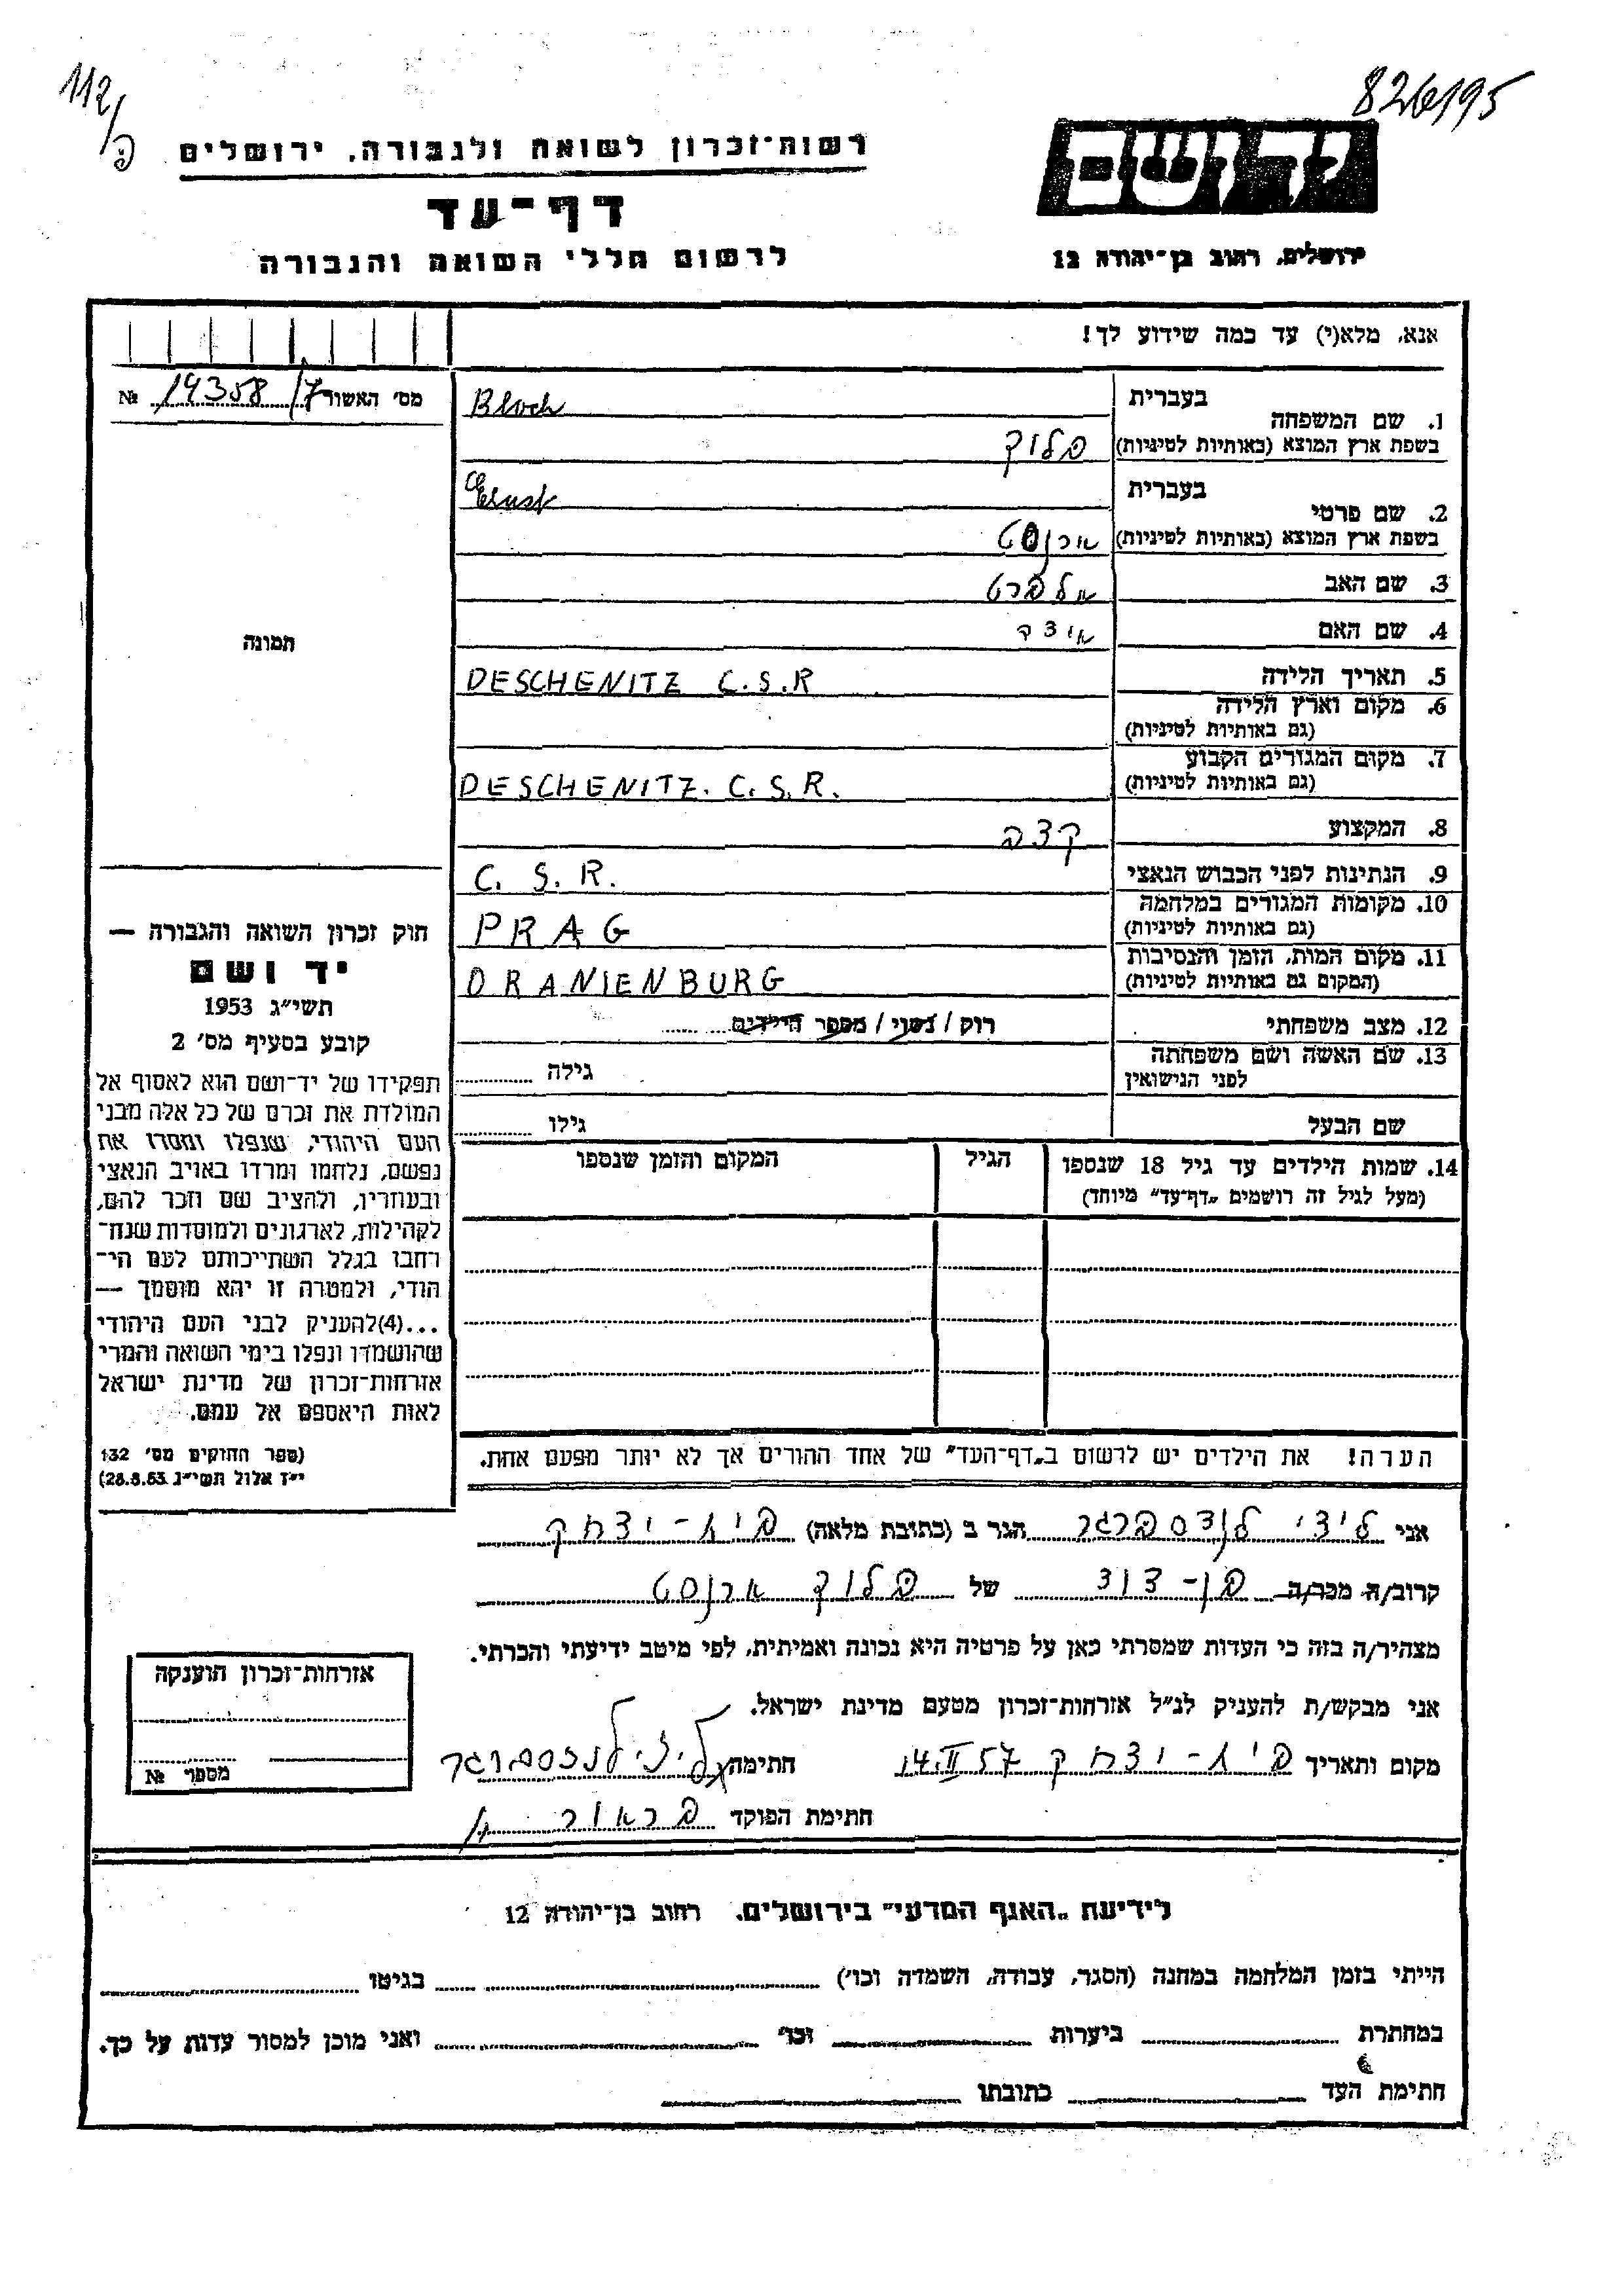 112/פ
826195
רשות־זכרון לשואה ולגבורה, ירושלים
יד ושם
דף־עד
לרשום חללי השואה והגבורה
ירושלים, רחוב בן־יהודה 12
אנא, מלא(י) עד כמה שידוע לך!
מס׳ האשור 14358/7 №
בעברית
Bloch
1. שם המשפחה
בשפת ארץ המוצא (באותיות לטיניות) בלוך
בעברית
Ernst
2. שם פרטי
בשפת ארץ המוצא (באותיות לטיניות) ארנסט
3. שם האב אלברט
4. שם האם אידה
5. תאריך הלידה
DESCHENITZ C.S.R
6. מקום וארץ הלידה
(גם באותיות לטיניות)
7. מקום המגורים הקבוע
(גם באותיות לטיניות) DESCHENITZ. C.S.R.
8. המקצוע קצב
9. הנתינות לפני הכבוש הנאצי C. S. R.
10. מקומות המגורים במלחמה
(גם באותיות לטיניות) PRAG
11. מקום המות, הזמן והנסיבות
(המקום גם באותיות לטיניות) ORANIENBURG
12. מצב משפחתי רוק / נשוי / מספר הילדים
13. שם האשה ושם משפחתה
לפני הנישואין גילה
שם הבעל גילו
14. שמות הילדים עד גיל 18 שנספו
(מעל לגיל זה רושמים „דף־עד״ מיוחד)
הגיל
המקום והזמן שנספו
הערה! את הילדים יש לרשום ב„דף־העד״ של אחד ההורים אך לא יותר מפעם אחת.
תמונה
חוק זכרון השואה והגבורה —
יד ושם
תשי״ג 1953
קובע בסעיף מס׳ 2
תפקידו של יד־ושם הוא לאסוף אל
המולדת את זכרם של כל אלה מבני
העם היהודי, שנפלו ומסרו את
נפשם, נלחמו ומרדו באויב הנאצי
ובעוזריו, ולהציב שם וזכר להם,
לקהילות, לארגונים ולמוסדות שנח־
רחבו בגלל השתייכותם לעם הי־
הודי, ולמטרה זו יהא מוסמך —
...(4)להעניק לבני העם היהודי
שהושמדו ונפלו בימי השואה והמרי
אזרחות־זכרון של מדינת ישראל
לאות היאספם אל עמם.
(ספר החוקים מס׳ 132
י״ז אלול תשי״ג 28.8.53)
אני לידי לנדסברגר הגר ב (כתובת מלאה) בית-יצחק
קרוב/ה מכר/ה בן-דוד של בלוך ארנסט
מצהיר/ה בזה כי העדות שמסרתי כאן על פרטיה היא נכונה ואמיתית, לפי מיטב ידיעתי והכרתי.
אני מבקש/ת להעניק לנ״ל אזרחות־זכרון מטעם מדינת ישראל.
מקום ותאריך בית-יצחק 14.II.57 חתימה לידי לנדסברגר
חתימת הפוקד
אזרחות־זכרון הוענקה
מספר №
לידיעת „האגף המדעי״ בירושלים, רחוב בן־יהודה 12
הייתי בזמן המלחמה במחנה (הסגר, עבודה, השמדה וכו׳) בגיטו
במחתרת ביערות וכו׳ ואני מוכן למסור עדות על כך.
חתימת העד כתובתו